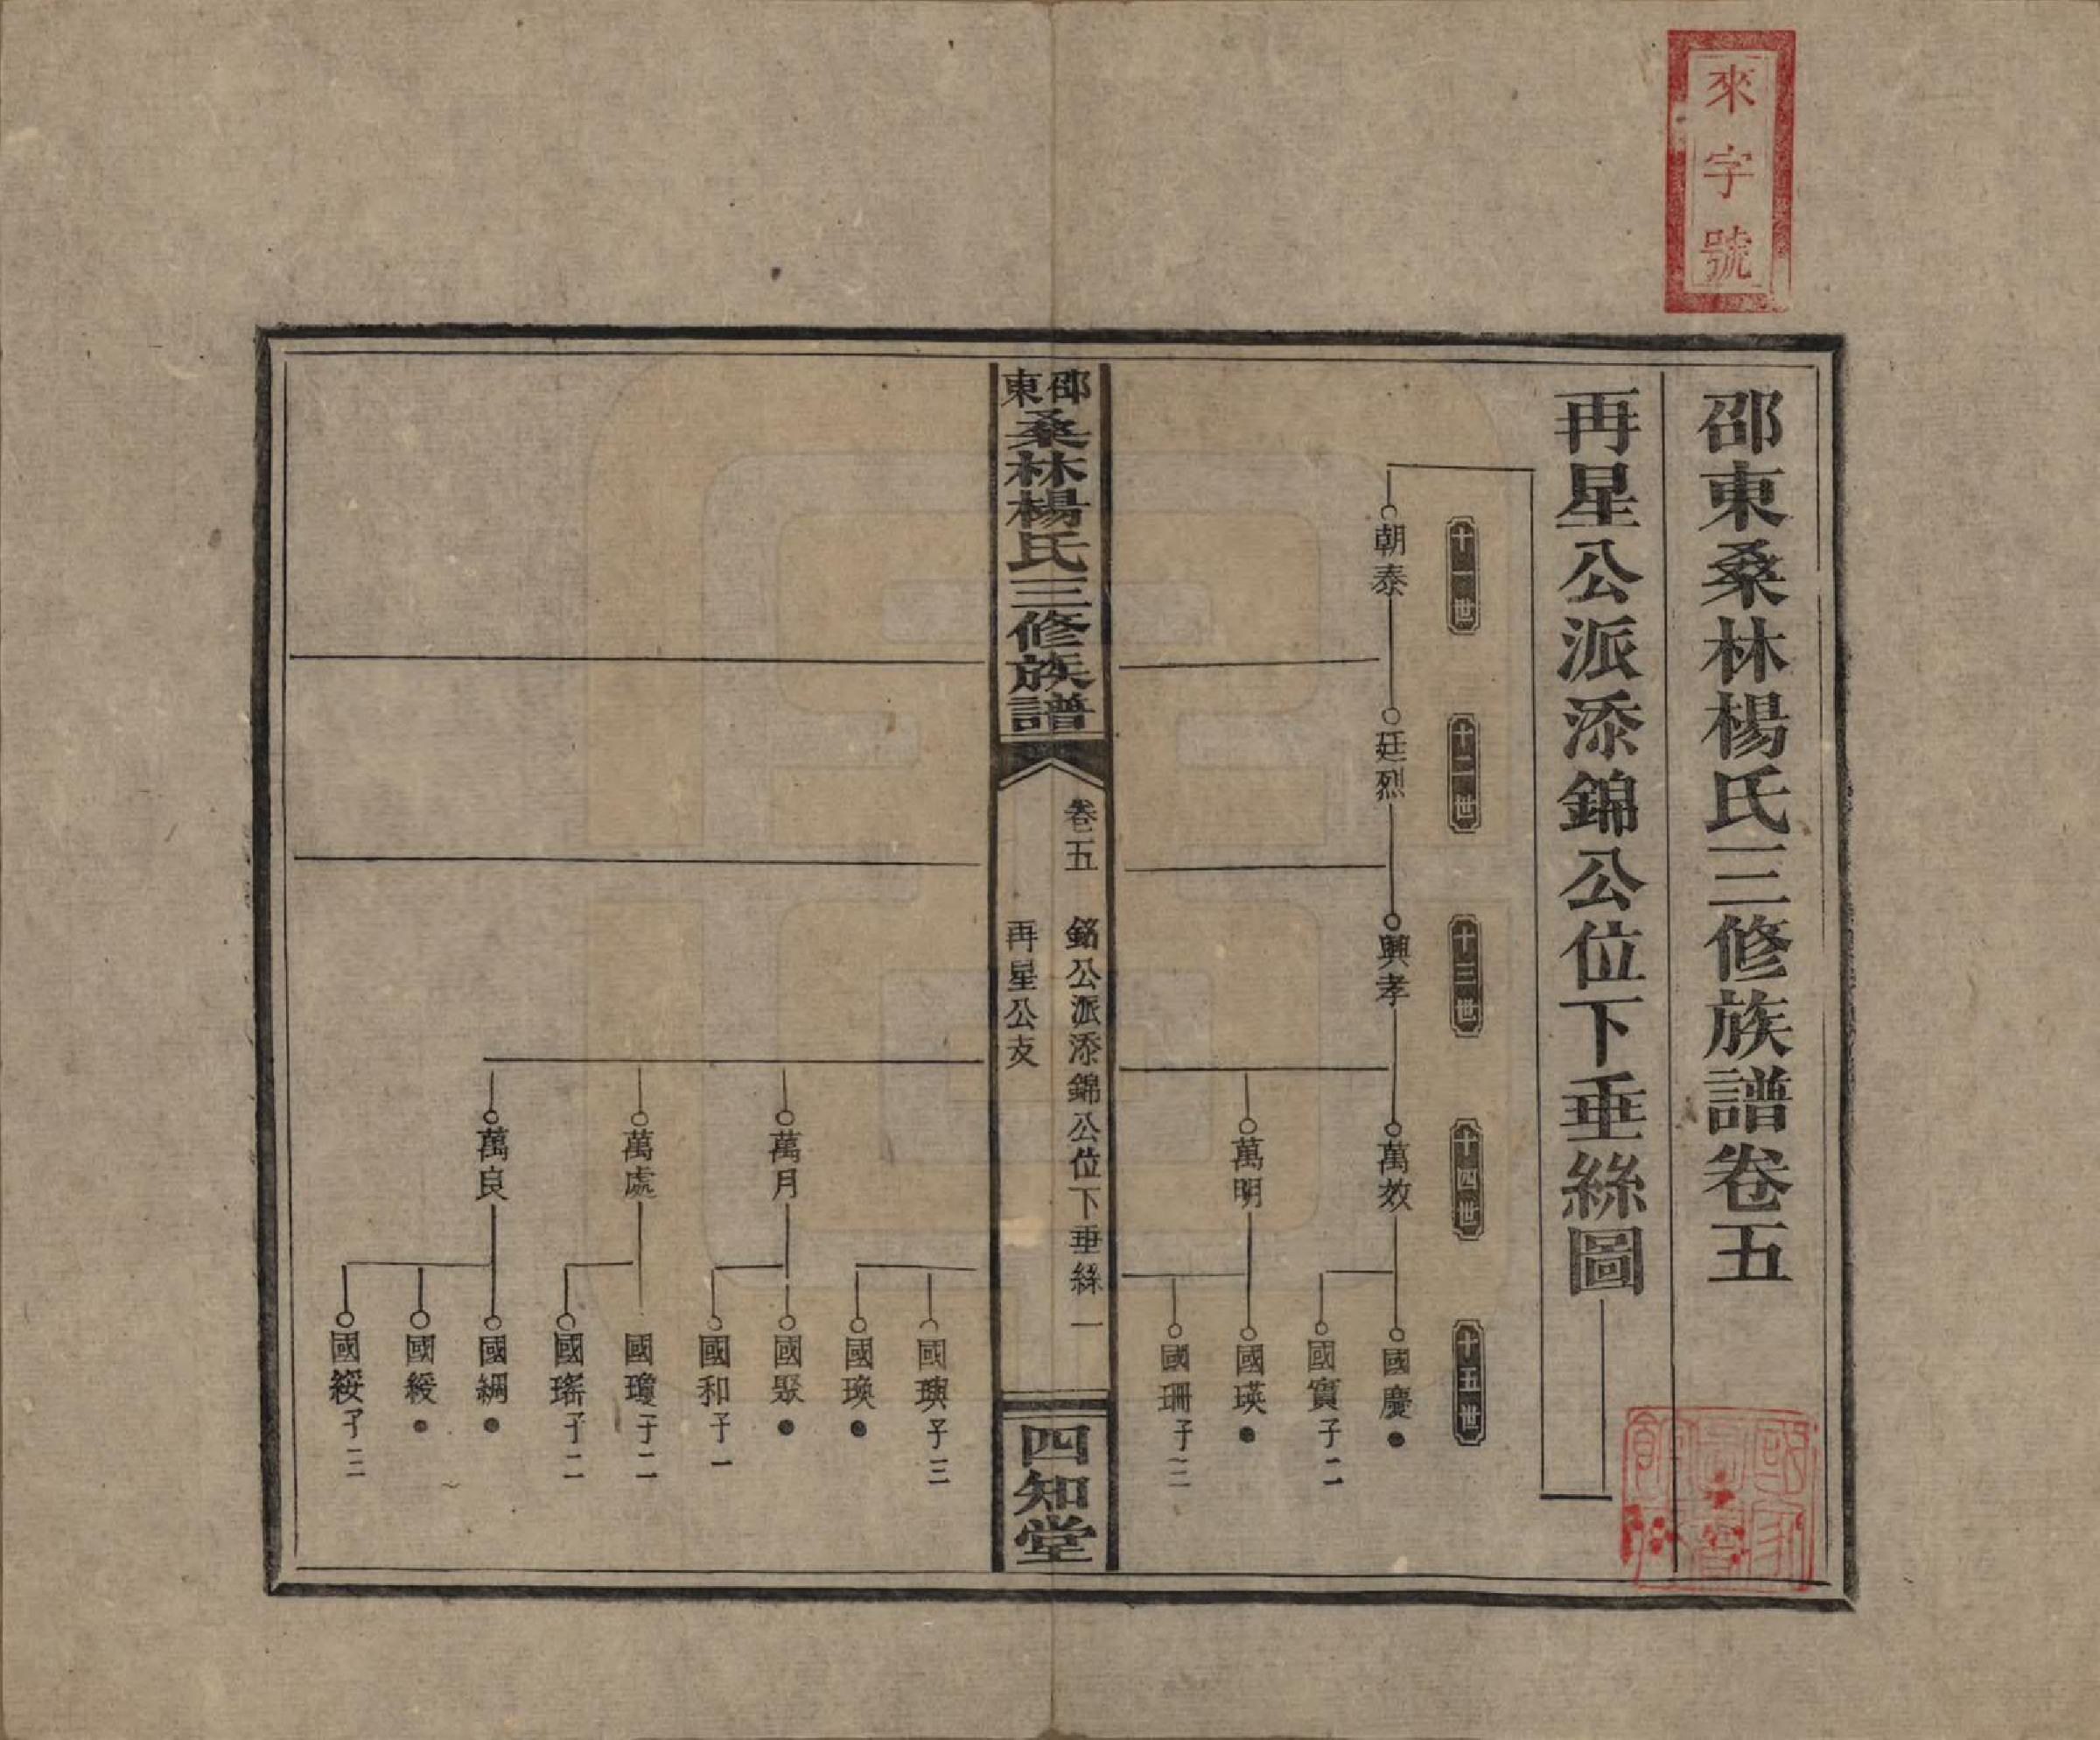 來字號
邵東桑林楊氏三修族譜卷五
再星公派添錦公位下垂絲圖
十一世
十二世
十三世
十四世
十五世
朝泰
廷烈
興孝
萬效
國慶●
國實 子二
萬明
國瑛●
國珊 子三
邵東桑林楊氏三修族譜
卷五
銘公派添錦公位下垂絲 一
再星公支
四知堂
國璵 子三
國瑍●
萬月
國聚●
國和 子一
萬處
國瓊 子二
國瑤 子二
萬良
國綢●
國緩●
國綏 子三